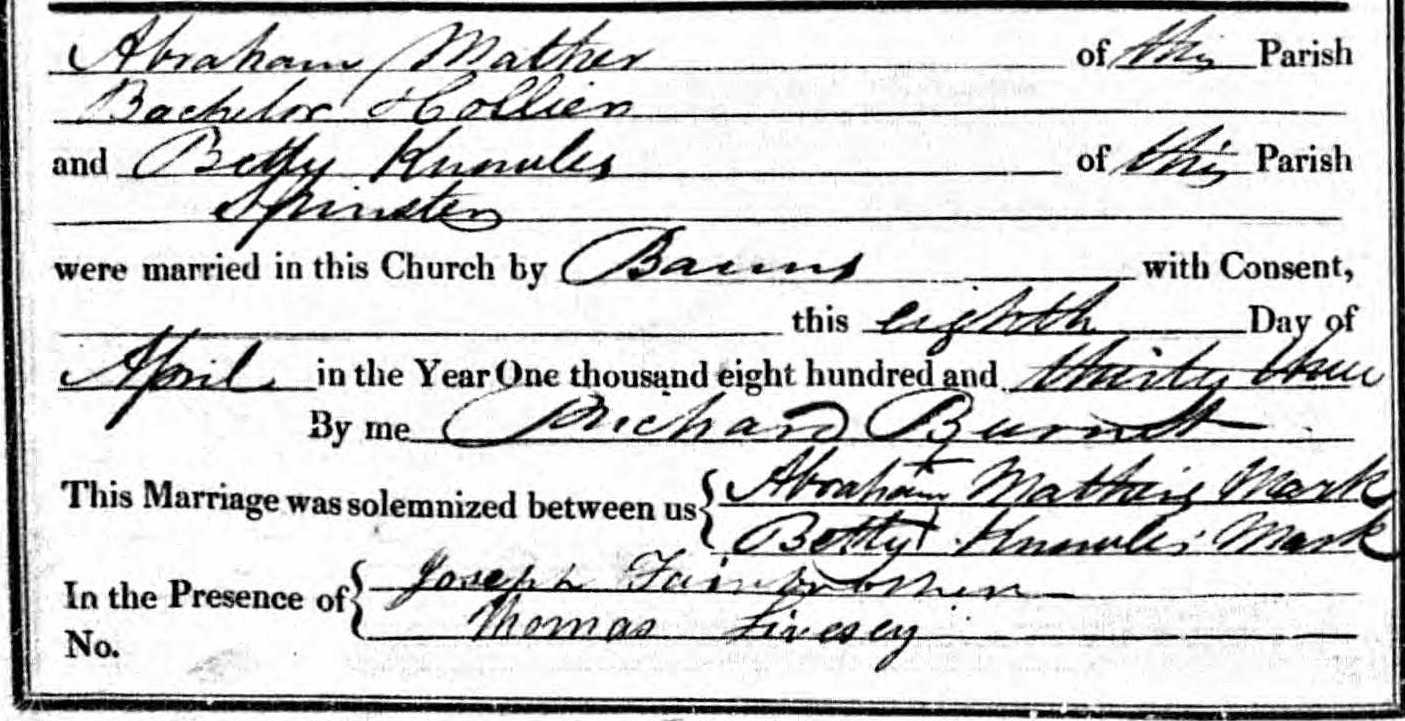 Abraham Mather of this Parish
Bachelor Collier
and Betty Knowles of this Parish
Spinster
were married in this Church by Banns with Consent,
this eighth Day of
April in the Year One thousand eight hundred and thirty three
By me Richard Burnet
This Marriage was solemnized between us { Abraham + Mathers Mark
Betty + Knowles' Mark
In the Presence of { Joseph Fairbrother
Thomas Livesey
No.